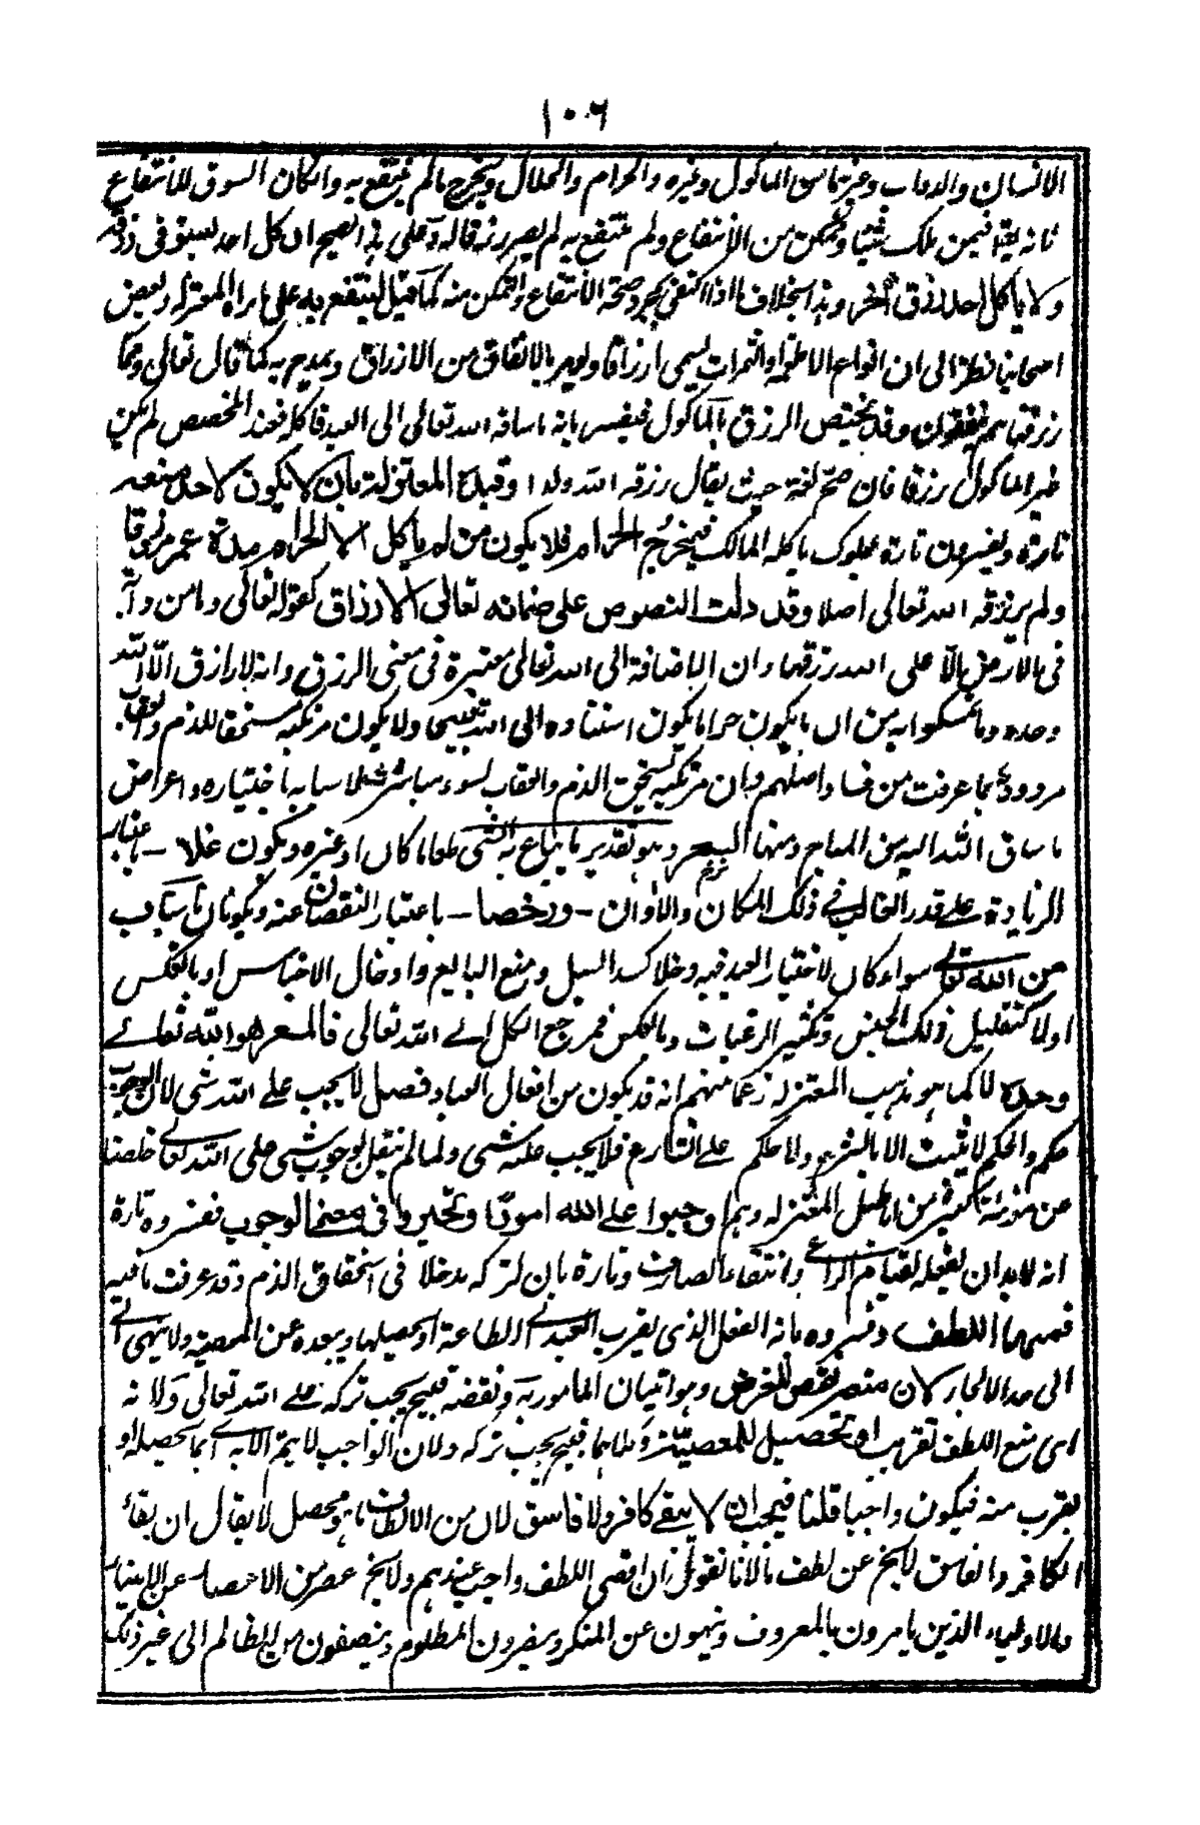 ١٠٦
الانسان والدواب وغيرهما من الماكول وغيره والحرام والحلال ويخرج مالم ينتفع به وان كان السوق للانتفاع
فانه يقال فيمن ملك شيئا وتمكن من الانتفاع ولم ينتفع به لم يصر رزقا له وعلى هذا يصح ان كل احد يستوفى رزقه
ولا ياكل احد رزق آخر وهذا بخلاف ما اذا اكتفى بمجرد صحة الانتفاع والتمكن منه كما قيل لينتفع به على ما يراه المعتزلة وبعض
اصحابنا نظرا الى ان انواع الاطعمة والثمرات يسمى ارزاقا ويومر بالانفاق من الارزاق ويمدح به كما قال تعالى ومما
رزقناهم ينفقون وقد يختص الرزق بالماكول فيفسر بانه ما ساقه الله تعالى الى العبد فاكله فعند المخصص لم يكن
غير الماكول رزقا فان صح لغة حيث يقال رزقه الله ولدا وقيدة المعتزلة بان لا يكون لاحد منعه
تارة ويفسرون تارة بمملوك ياكله المالك فيخرج الحرام فلا يكون من لم ياكل الا الحرام مدة عمره مرزوقا
ولم يرزقه الله تعالى اصلا وقد دلت النصوص على ضمانه تعالى الارزاق كقوله تعالى وما من دابة
فى الارض الا على الله رزقها وان الاضافة الى الله تعالى معتبرة فى معنى الرزق وانه لا رازق الا الله
وحده وما تمسكوا به من ان ما يكون حراما يكون استناده الى الله قبيحا ولا يكون مرتكبه مستحقا للذم والعقاب
مردود بما عرفت من فساد اصلهم وبان مرتكبه يستحق الذم والعقاب لسوء مباشرته لاسبابه باختياره واعراض
ما ساق الله اليه من المباح ومنها السعر وهو تقدير ما يباع به الشى طعاما كان او غيره ويكون غلاء - باعتبار
الزيادة على قدر الغالب فى ذلك المكان والاوان - ورخصا - باعتبار النقصان عنه ويكونان باسباب
من الله تعالى سواء كان لاختيار العبد فيه دخلا كسد السبل ومنع البايع وادخال الاجناس او بالعكس
اولا كتقليل ذلك الجنس وتكثير الرغبات وبالعكس فمرجع الكل الى الله تعالى فالمسعر هو الله تعالى
وحده لا كما هو مذهب المعتزلة زعما منهم انه قد يكون من افعال العباد فصل لا يجب على الله شى لان الوجوب
حكم والحكم لا يثبت الا بالشرع ولا حاكم على الشارع فلا يجب عليه شى ولما لم نقل بوجوب شى على الله تعالى خلصنا
عن مؤنة كثيرة من اباطيل المعتزلة وهم اوجبوا على الله امورا وتحيروا فى معنى الوجوب ففسروه تارة
انه لابد ان يفعله لقيام الداعى وانتفاء الصارف وتارة بان لتركه مدخلا فى استحقاق الذم وقد عرفت ما فيه
فمنها اللطف وفسروه بانه الفعل الذى يقرب العبد الى الطاعة او تحصيلها ويبعده عن المعصية ولا ينتهى
الى حد الالجاء لان منعه نقص للغرض وهو اتيان المأمور به ونقضه قبيح يجب تركه على الله تعالى ولانه
اى منع اللطف تقريب او تحصيل للمعصية وكلاهما قبيح يجب تركه ولان الواجب لا يتم الا به اى بما يحصله او
يقرب منه فيكون واجبا قلنا فيجب ان لا يبقى كافر ولا فاسق لان من الالطاف ما هو محصل لا يقال ان بقاء
الكافر والفاسق لا يخ عن لطف ما لانا نقول ان اقصى اللطف واجب عندهم ولا يخ عصر من الاعصار عن الانبياء
والاولياء الذين يامرون بالمعروف وينهون عن المنكر وينصرون المظلوم وينصفون من الظالم الى غير ذلك